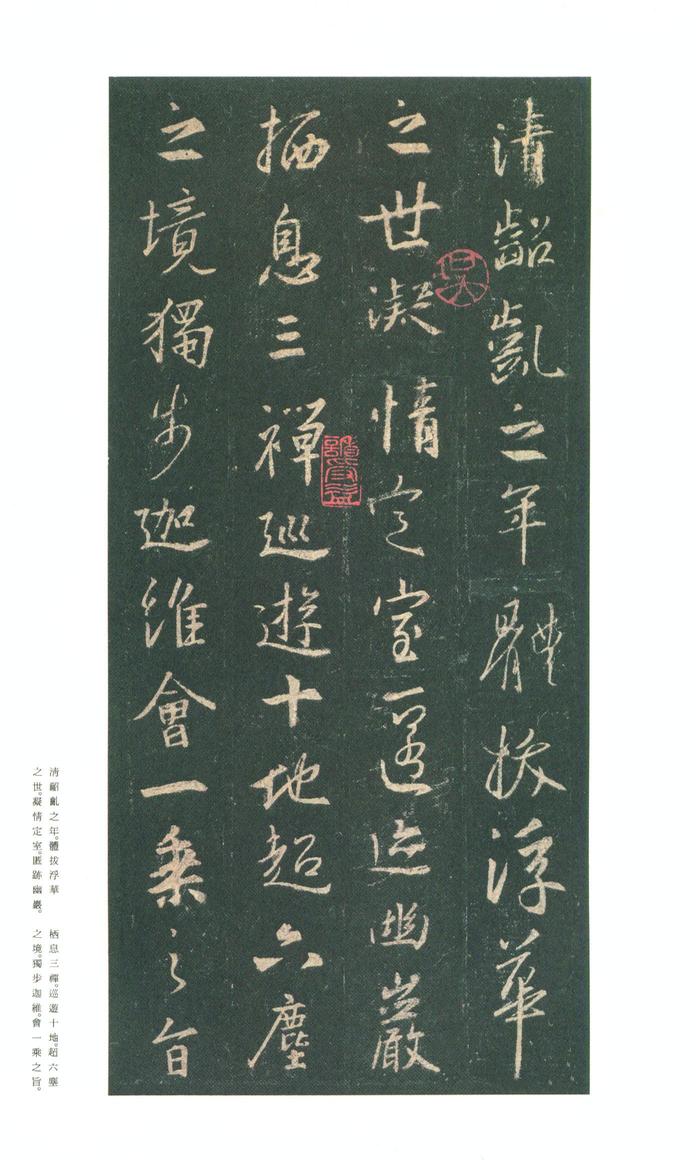 清齠齔之年體拔浮華
之世凝情定室匿迹幽巖
栖息三禪巡遊十地超六塵
之境獨步迦維會一乘之旨
清齠齔之年。體拔浮華
之世。凝情定室。匿跡幽巖。
栖息三禪。巡遊十地。超六塵
之境。獨步迦維。會一乘之旨。